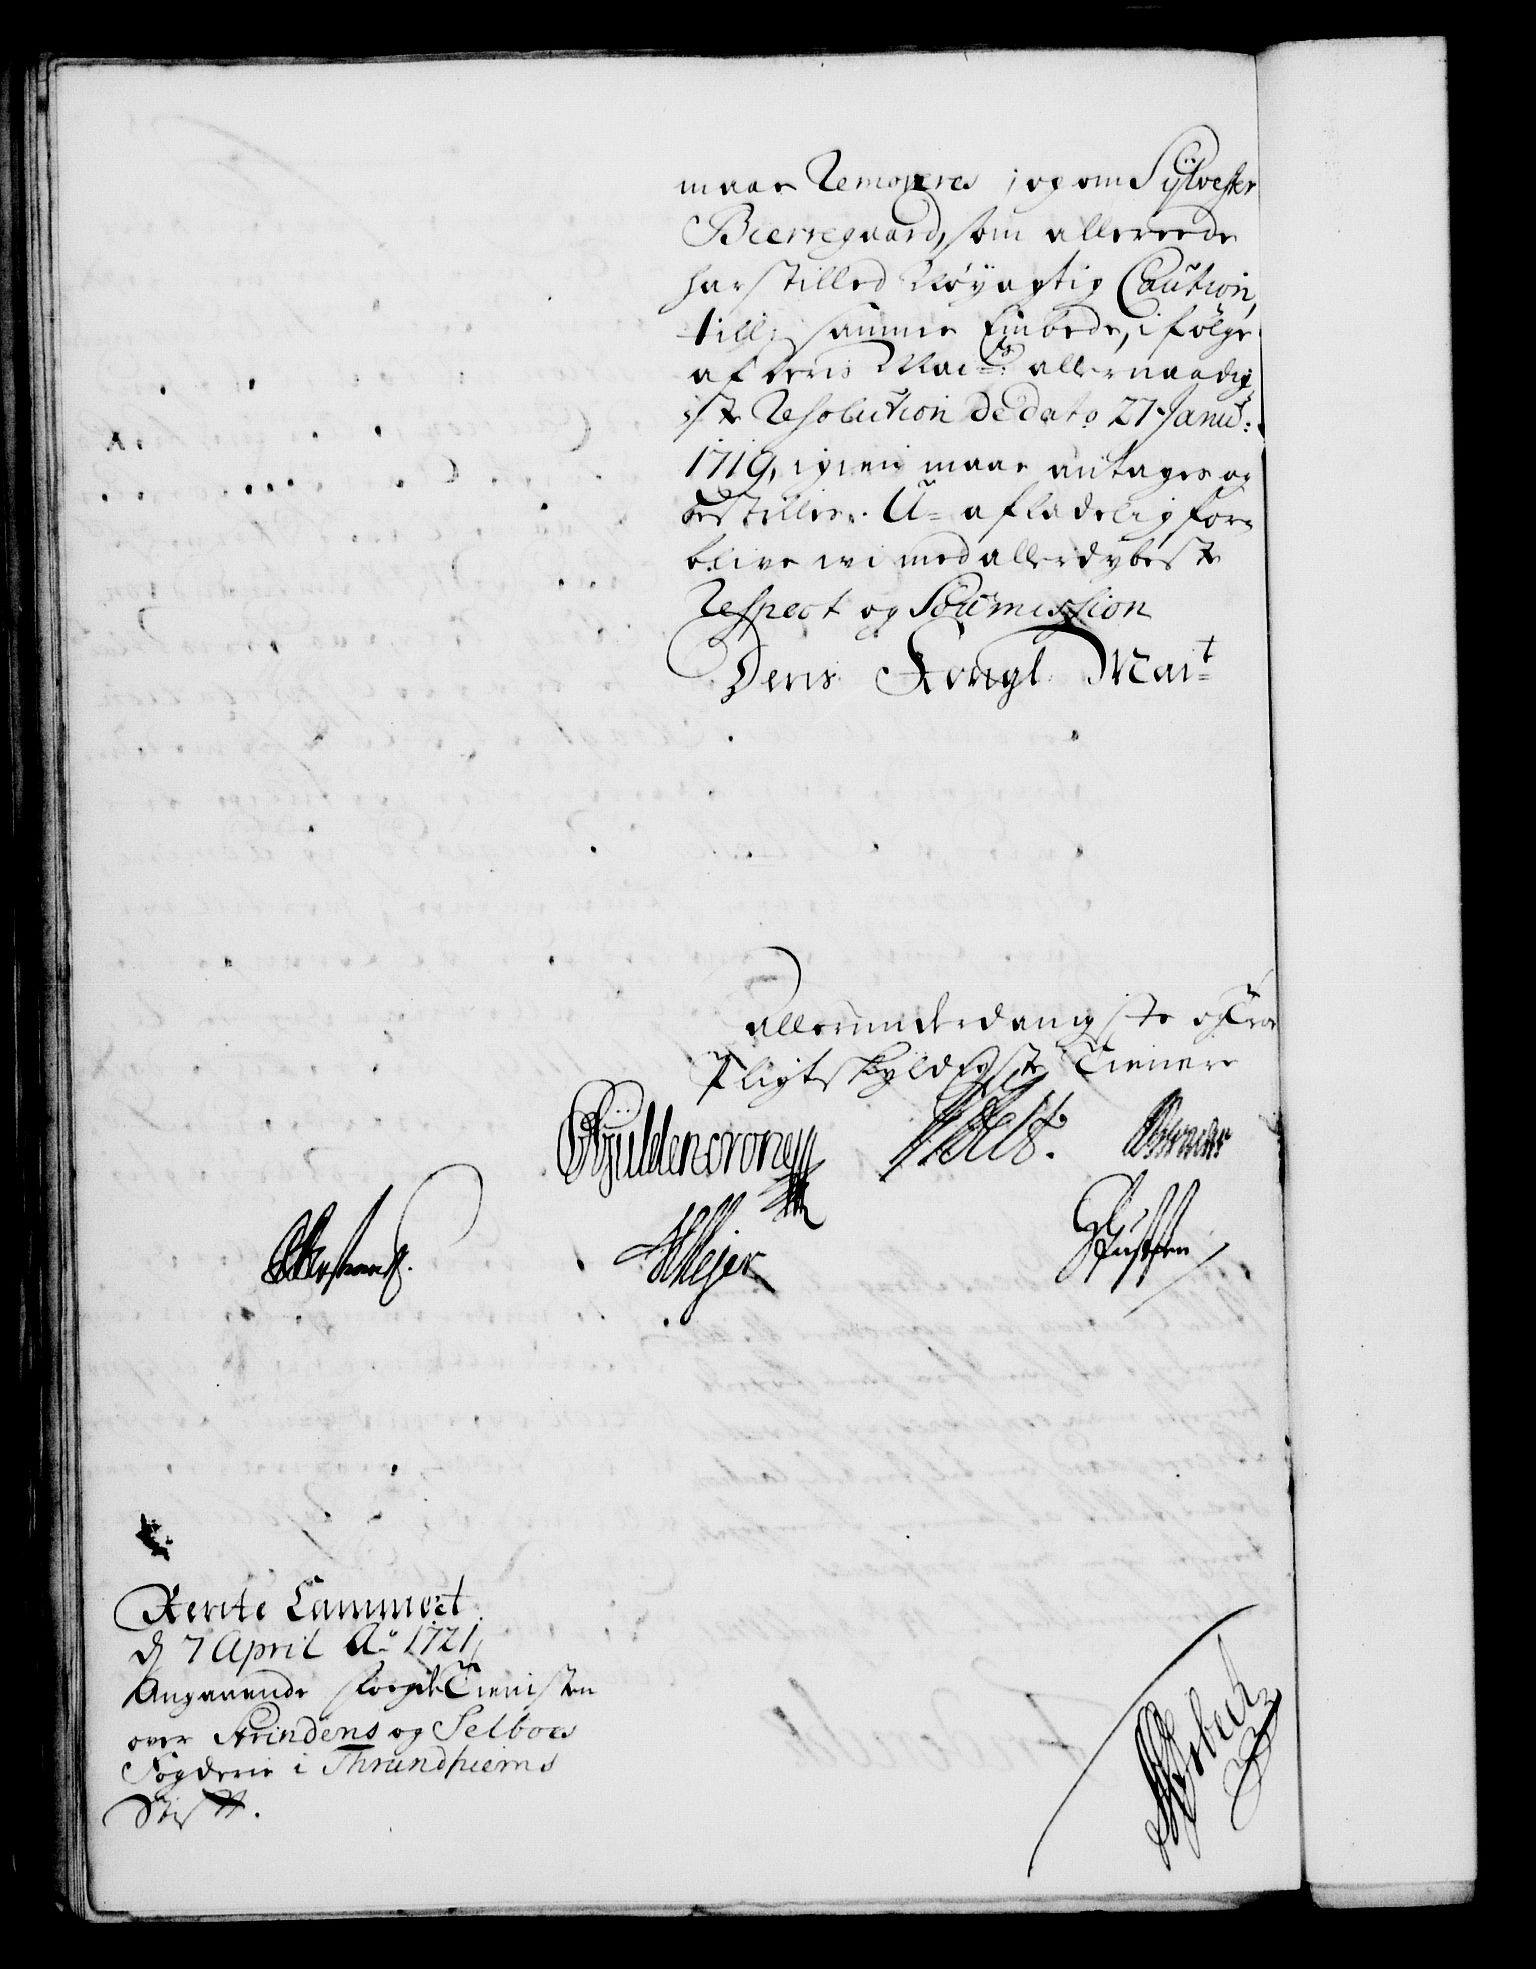 maae Removeres, og om Sÿlvester
Bierregaard, som allereede
har stilled Nöyagtig Caution,
till samme Embede, i fölge
af Deris Mai:ts allernaadig,
ste Resolution De dato 27 Janu:
1719, igien maae antages og
bestilles. U=afladelig for=
blive wi med allerdybeste
Respect og Soumission
Deris Kongl. Mai:t
allerunderdanigste og Troe
Pligtskyldigste Tienere
Gÿldencrone
HMejer
Rente Cammeret
d 7 April Ao 1721,
Angaaende Foged Tienisten
over Strindens og Selboes
Fogderie i Thrundhiems
Stift.